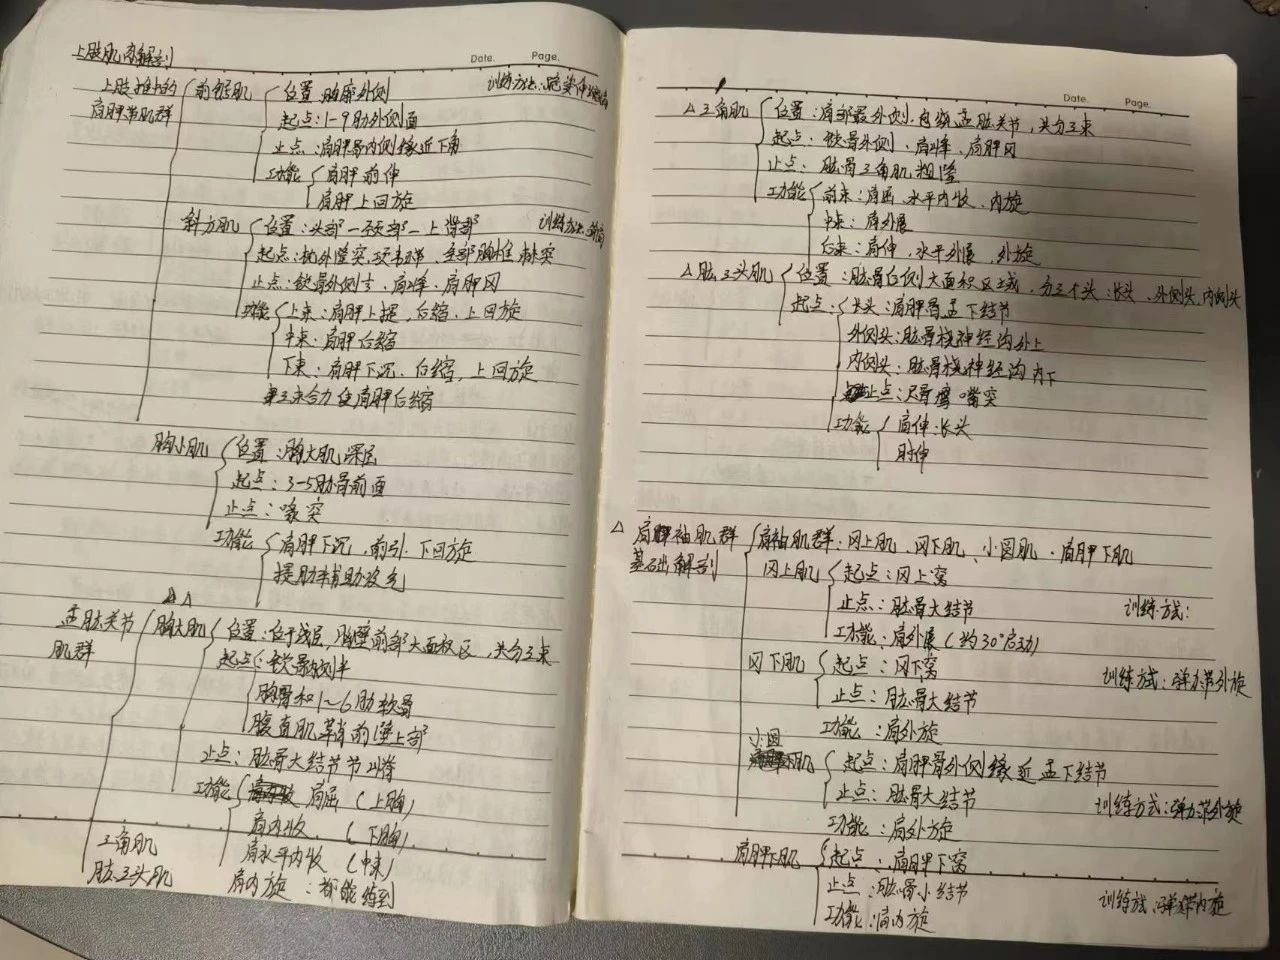 上肢肌肉解剖
Date. Page.
上肢推的 前锯肌 位置：胸廓外侧 训练方法：跪姿
肩胛带肌群 起点：1-9肋外侧面
止点：肩胛骨内侧缘近下角
功能 肩胛前伸
肩胛上回旋
斜方肌 位置：头部-颈部-上背部 训练方法：
起点：枕外隆突，项韧带，全部胸椎棘突
止点：锁骨外侧，肩峰，肩胛冈
功能 上束：肩胛上提，后缩，上回旋
中束：肩胛后缩
下束：肩胛下沉，后缩，上回旋
三束合力使肩胛后缩
胸小肌 位置：胸大肌深层
起点：3-5肋骨前面
止点：喙突
功能 肩胛下沉，前引，下回旋
提肋辅助吸气
盂肱关节 胸大肌 位置：位于浅层，胸壁前部大面积区，共分三束
肌群 起点：锁骨内侧半
胸骨和1~6肋软骨
腹直肌鞘前壁上部
止点：肱骨大结节
功能 肩屈（上胸）
肩内收（下胸）
三角肌 肩水平内收（中束）
肱三头肌 肩内旋：都能练到
Date. Page.
△三角肌 位置：肩部最外侧，包绕盂肱关节，共分三束
起点：锁骨外侧，肩峰，肩胛冈
止点：肱骨三角肌粗隆
功能 前束：肩屈，水平内收，内旋
中束：肩外展
后束：肩伸，水平外展，外旋
△肱三头肌 位置：肱骨后侧大面积区域，分三个头：长头、外侧头，内侧头
起点：长头：肩胛骨盂下结节
外侧头：肱骨桡神经沟外上
内侧头：肱骨桡神经沟内下
止点：尺骨鹰嘴突
功能 肩伸：长头
肘伸
△肩袖肌群 肩袖肌群：冈上肌，冈下肌，小圆肌，肩胛下肌
基础解剖 冈上肌 起点：冈上窝
止点：肱骨大结节 训练方式：
功能：肩外展（约30°启动）
冈下肌 起点：冈下窝
止点：肱骨大结节 训练方式：弹力带外旋
功能：肩外旋
小圆肌 起点：肩胛骨外侧缘近盂下结节
止点：肱骨大结节 训练方式：弹力带外旋
功能：肩外旋
肩胛下肌 起点：肩胛下窝
止点：肱骨小结节 训练方式：弹力带内旋
功能：肩内旋